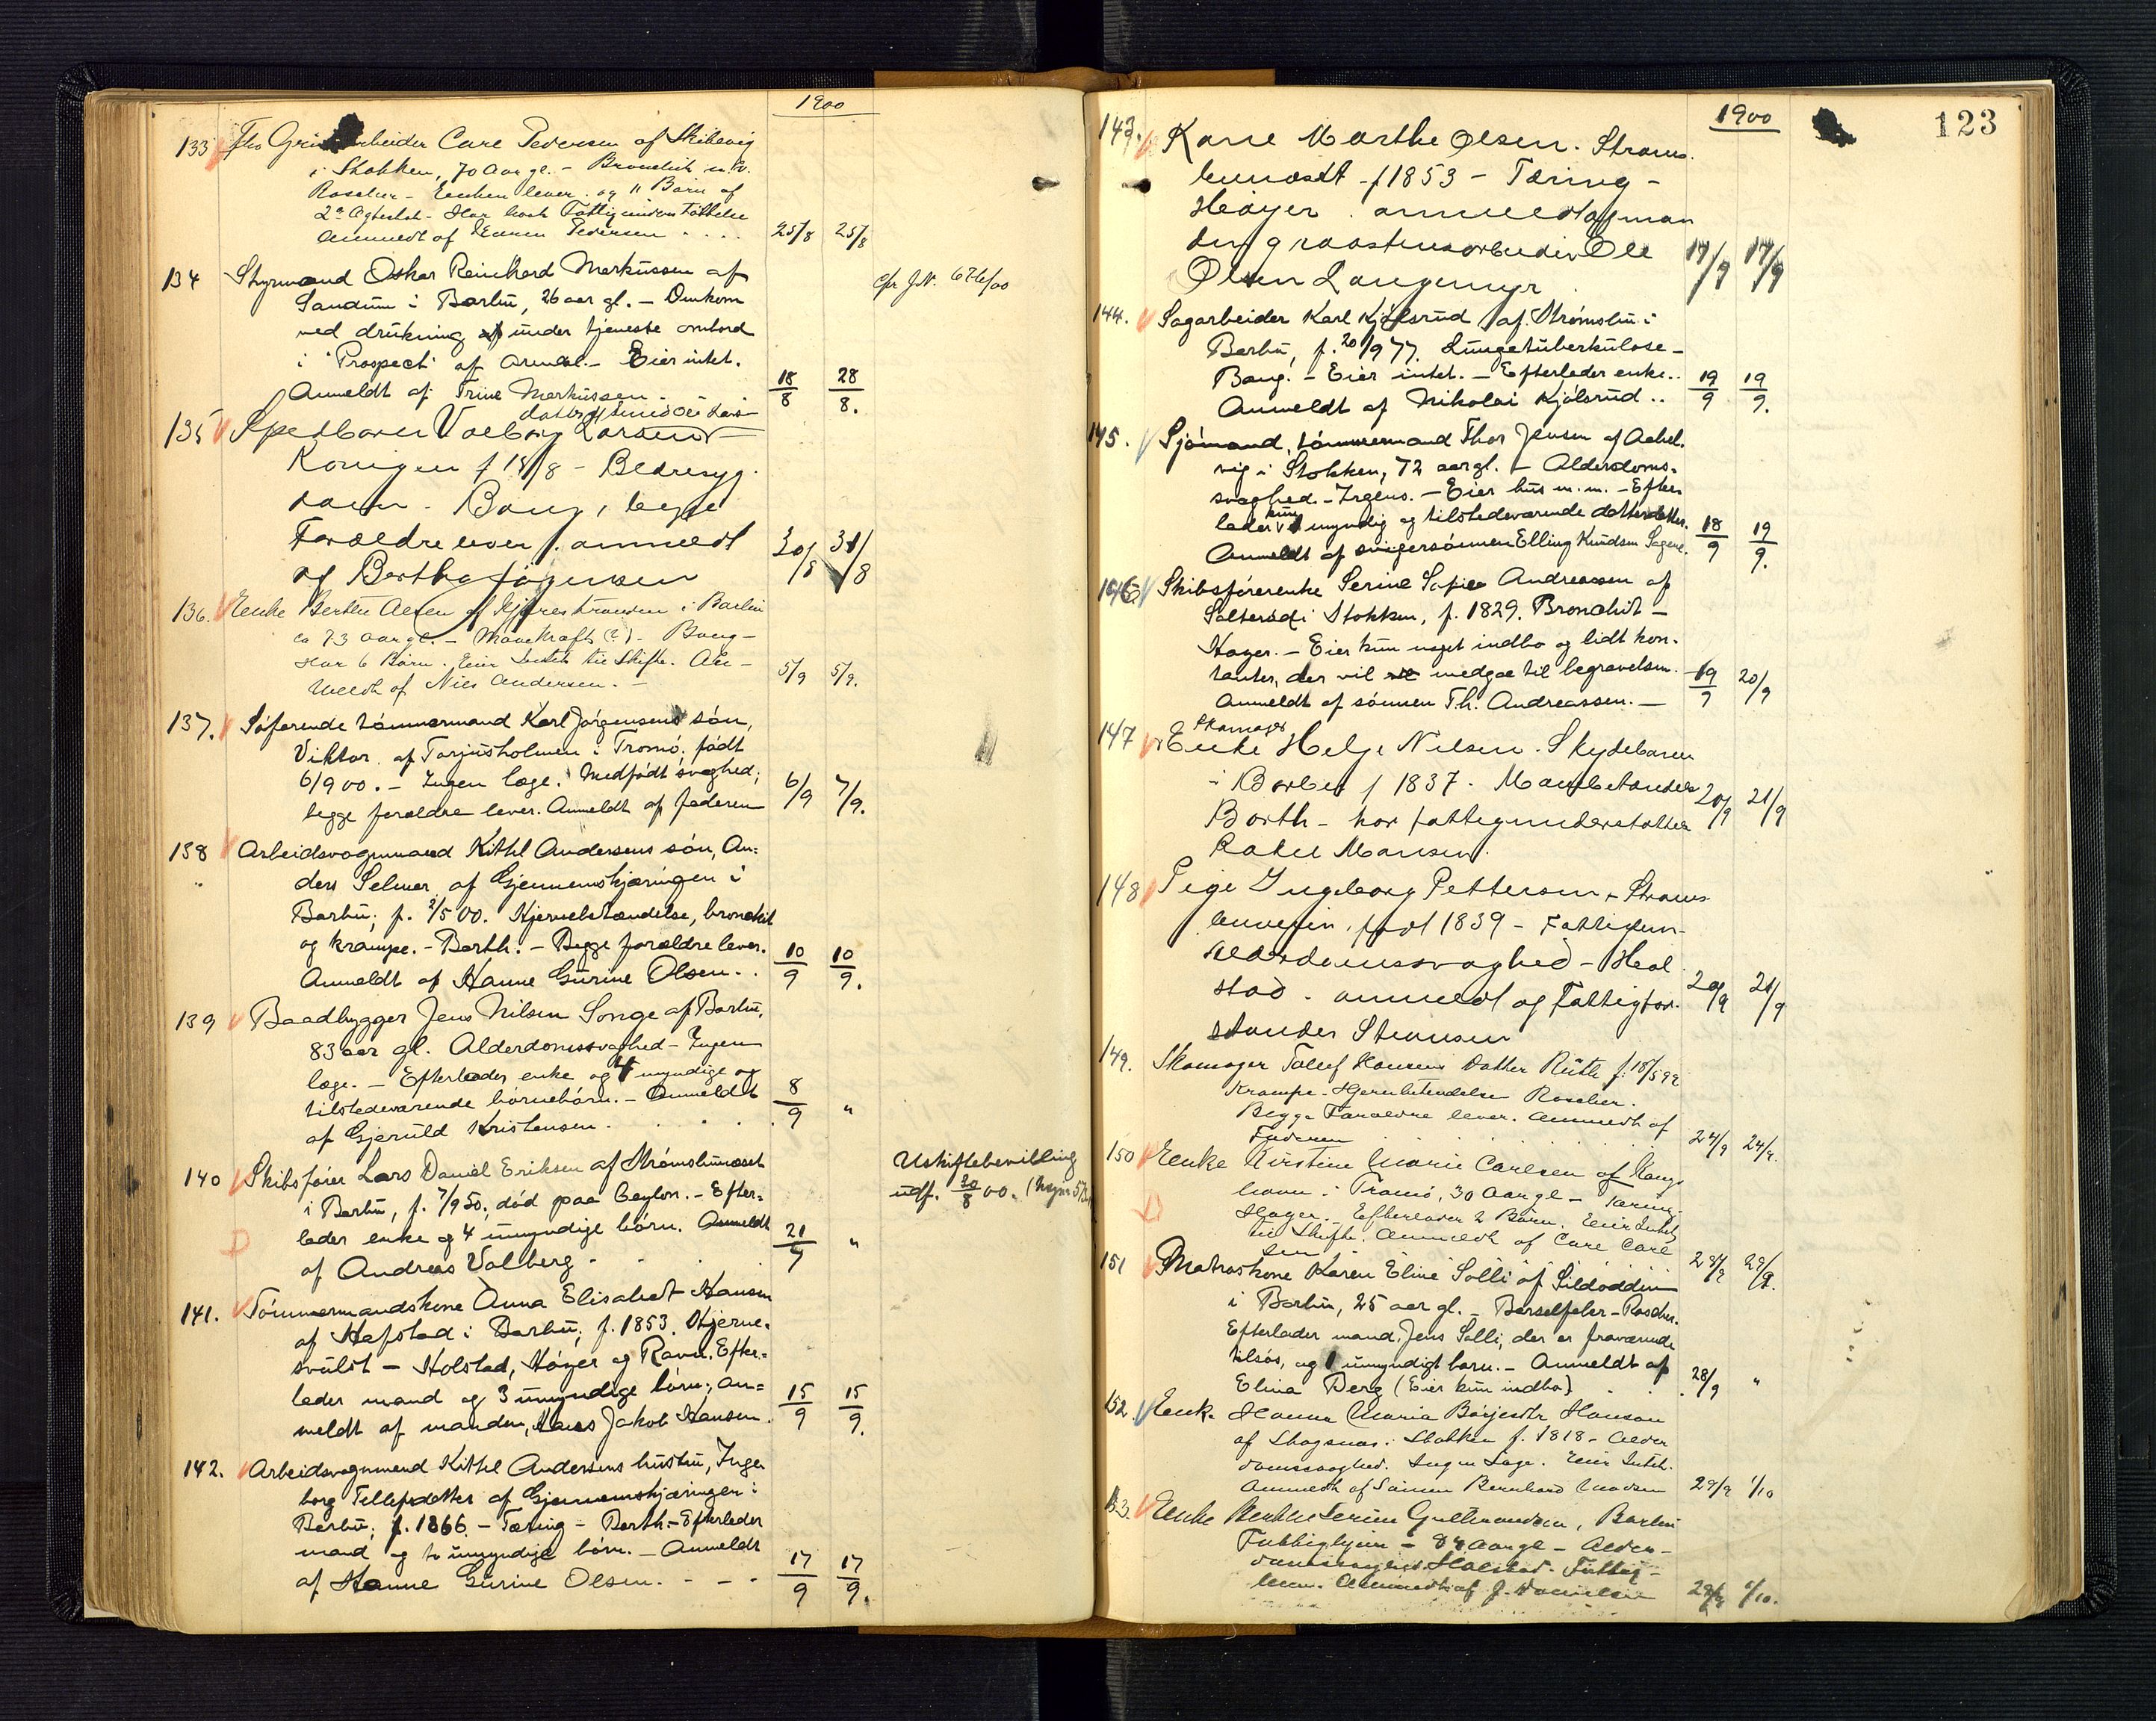 1900
133 Fhv Gru arbeider Carl Pedersen af Skibevig
i Stokken, 70 Aar gl. - Bronchit
Roscher - Enken lever og 11 Børn af
2. Ægteskab - Har havt Fattigunderstøttelse
Anmeldt af Pedersen . . . . 25/8 25/8
134 Styrmand Oskar Reinhard Markussen af cfr J.N. 676/00
Sandum i Barbu, 26 aar gl. - Omkom
ved drukning under tjeneste ombord
i "Prospect" af Arendal. - Eier intet.
Anmeldt af Trine Markussen. 18/8 28/8.
135 Spedbarn Valborg Larsen
datter af
Kongen f 15/8 - Blodresyg
Bang, begge
Forældre lever . anmeldt
af Berthe Jørgensen 30/8 31/8
136. Enke Berthe Olsen af Kjerrestranden i Barbu
ca 73 Aar gl. - Mavekræft (?) - Bang -
Har 6 Børn. Eier Intet til Skifte. An-
meldt af Nils Andersen. - 5/9 5/9.
137. Søfarende tømmermand Karl Jørgensens søn,
Viktor af Torjusholmen i Tromø, født
6/9 00. - Ingen læge. Medfødt svaghed;
begge forældre lever. Anmeldt af faderen 6/9 7/9.
138 Arbeidsvognmand Kittil Andersens søn, An=
ders Selmer af Gjennemskjæringen i
Barbu; f. 2/5 00. Hjernebetændelse, bronchit
og krampe. - Barth. - Begge forældre lever.
Anmeldt af Hanne Gurine Olsen. . 10/9 10/9.
139 Baadbygger Jens Nilsen Songe af Barbu,
83 aar gl. Alderdomssvaghed - Ingen
læge. - Efterlader enke og 4 myndige og
tilstedeværende børnebørn. - Anmeldt 8/9 "
af Gjeruld Kristensen . . . .
140 Skibsfører Lars Daniel Eriksen af Strømsbunæset Uskiftebevilling
i Barbu, f. 7/9 50; død paa Ceylon. - Efter= udf. 30/8 00.
lader enke og 4 umyndige børn. Anmeldt 21/7 "
D
af Andreas Valberg . . .
141. Tømmermandskone Anna Elisabet Hansen
af Hafstad i Barbu; f. 1853. Hjerne=
svulst - Holstad, Høyer og Ravn. Efter=
lader mand og 3 umyndige børn; an=
meldt af manden, Hans Jakob Hansen. 15/9 15/9.
142. Arbeidsvognmand Kittil Andersens hustru, Inge
borg Tellefsdatter af Gjennemskjæringen i
Barbu; f. 1866. - Tæring - Barth. - Efterlader
mand og to umyndige børn. - Anmeldt
af Hanne Gurine Olsen. - - . 17/9 17/9.
1900
123
143. Karie Marthe Olsen. Strøms
bunæset - f 1853 - Tæring -
Høyer . anmeldt af man
den graastensarbeider Ole
Olsen Langemyr . 17/9 17/9
144. Sagarbeider Karl Kjølsrud af Strømsbu i
Barbu, f. 20/9 77. Lungetuberkulose -
Bang. - Eier intet. - Efterlader enke. .
Anmeldt af Nikolai Kjølsrud . . 19/9 19/9.
145. Sjømand, tømmermand Thor Jensen af Aakel
vig i Stokken, 72 aar gl. - Alderdoms=
svaghed - Irgens. - Eier hus m. m. - Efter
lader kun 1 myndig og tilstedeværende datterdatter.
Anmeldt af svigersønnen Elling Knudsen Sagene. 18/9 19/9.
146 Skibsførerenke Serine Sofie Andreassen af
Salterød i Stokken, f. 1829. Bronchit -
Høyer. - Eier kun noget indbo og lidt kon=
tanter, der vil medgaa til begravelsen.
Anmeldt af sønnen Th. Andreassen. - 19/9 20/9
147 Enke Helje Nilsen. Skydebanen
Skomager
i Barbu f 1837. Mavebetændelse
Barth - har fattigunderstøttelse 20/9 21/9
Rakel Hansen.
148 Pige Ingeborg Pettersen, Strøms
buveien, født 1839 - Fattiglem -
Alderdomssvaghed - Hol
stad . anmeldt af Fattigfor 20/9 21/9
stander Steansen
149. Skomager Tollef Hansens Datter Ruth f. 18/5 99
Krampe. Hjernebetændelse Roscher.
Begge Forældre lever. Anmeldt af
Faderen . . . 24/9 24/9.
150 Enke Kirstine Marie Carlsen af Kongs
havn i Tromø, 30 Aar gl - Tæring.
D
Høyer. Efterlader 2 Børn. Eier Intet
til Skifte. Anmeldt af Carl Carl
sen 28/9 29/9.
151 Matroskone Karen Eline Solli af Sildodden
i Barbu, 25 aar gl. - Barselfeber - Roscher.
Efterlader mand, Jens Solli, der er fraværende
tilsøs, og 1 umyndigt barn. - Anmeldt af
Elina Berg (Eier kun indbo) . . 28/9 "
152. Enke Hanna Maria Børjesdtr Hansen
af Skagsnæs i Stokken f. 1818 - Alder
domssvaghed. Ingen Læge. Eier Intet.
Anmeldt af Sønnen Bernhard Madsen 29/9 1/10
153. Enke Berthe Serine Gulbrandsen, Barbu
Fattighjem - 84 Aar gl - Alder-
domssvaghed Holstad. Fattig-
lem. Anmeldt af J. Danielsen 29/9 1/10.